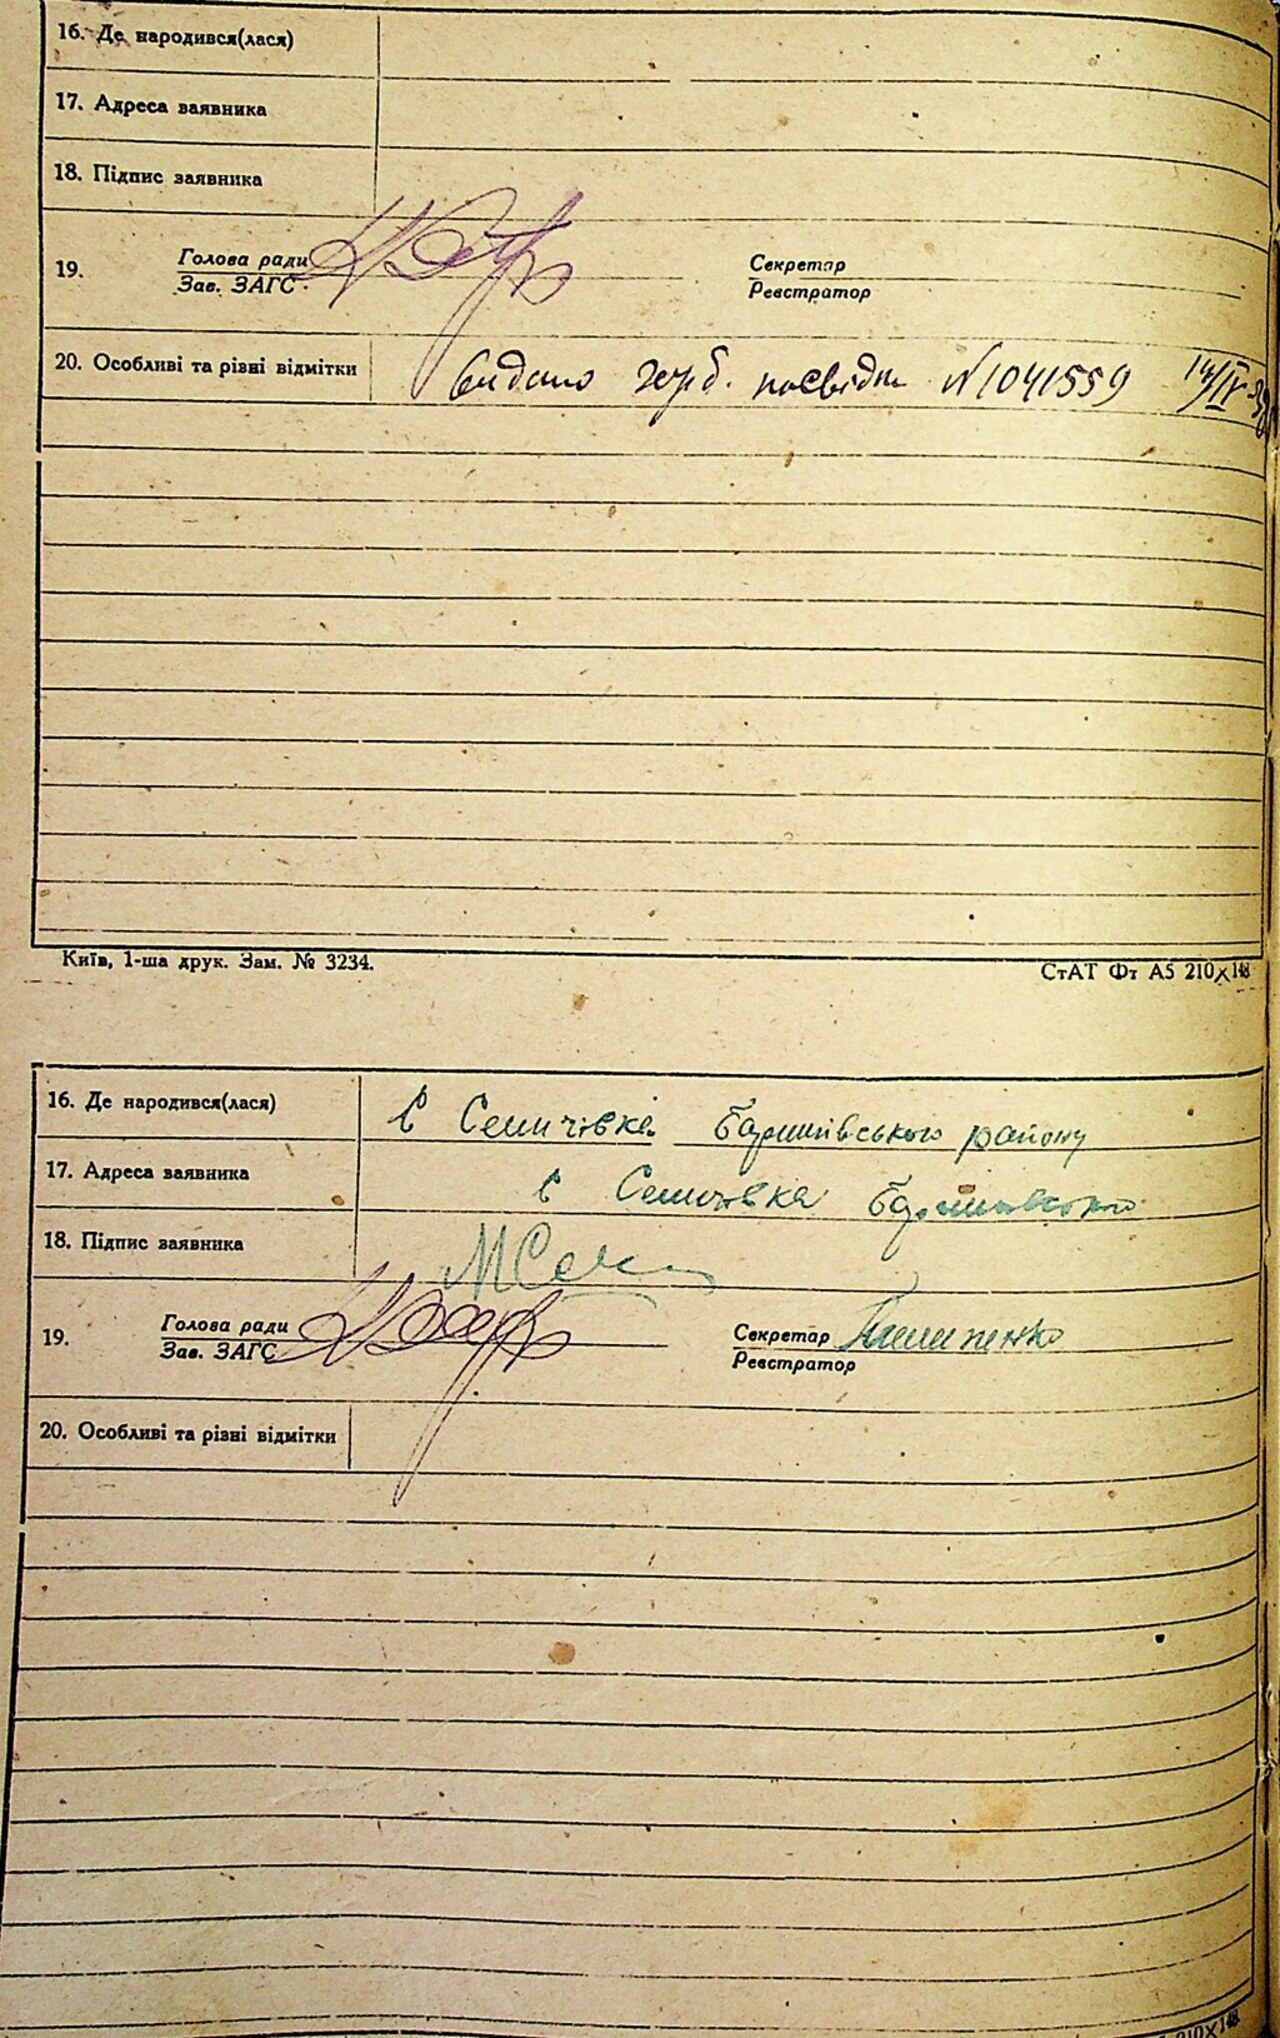 16. Де народився(лася)
17. Адреса заявника
18. Підпис заявника
19. Голова ради Секретар
Зав. ЗАГС Реєстратор
20. Особливі та різні відмітки Видано герб. посвідк N1041559 14/IV-38
Київ, 1-ша друк. Зам. № 3234. СтАТ Фт А5 210×148
16. Де народився(лася) С Семичівка Баришівського району
17. Адреса заявника с Семичівка
18. Підпис заявника
19. Голова ради Секретар Пилипенко
Зав. ЗАГС Реєстратор
20. Особливі та різні відмітки
210×148